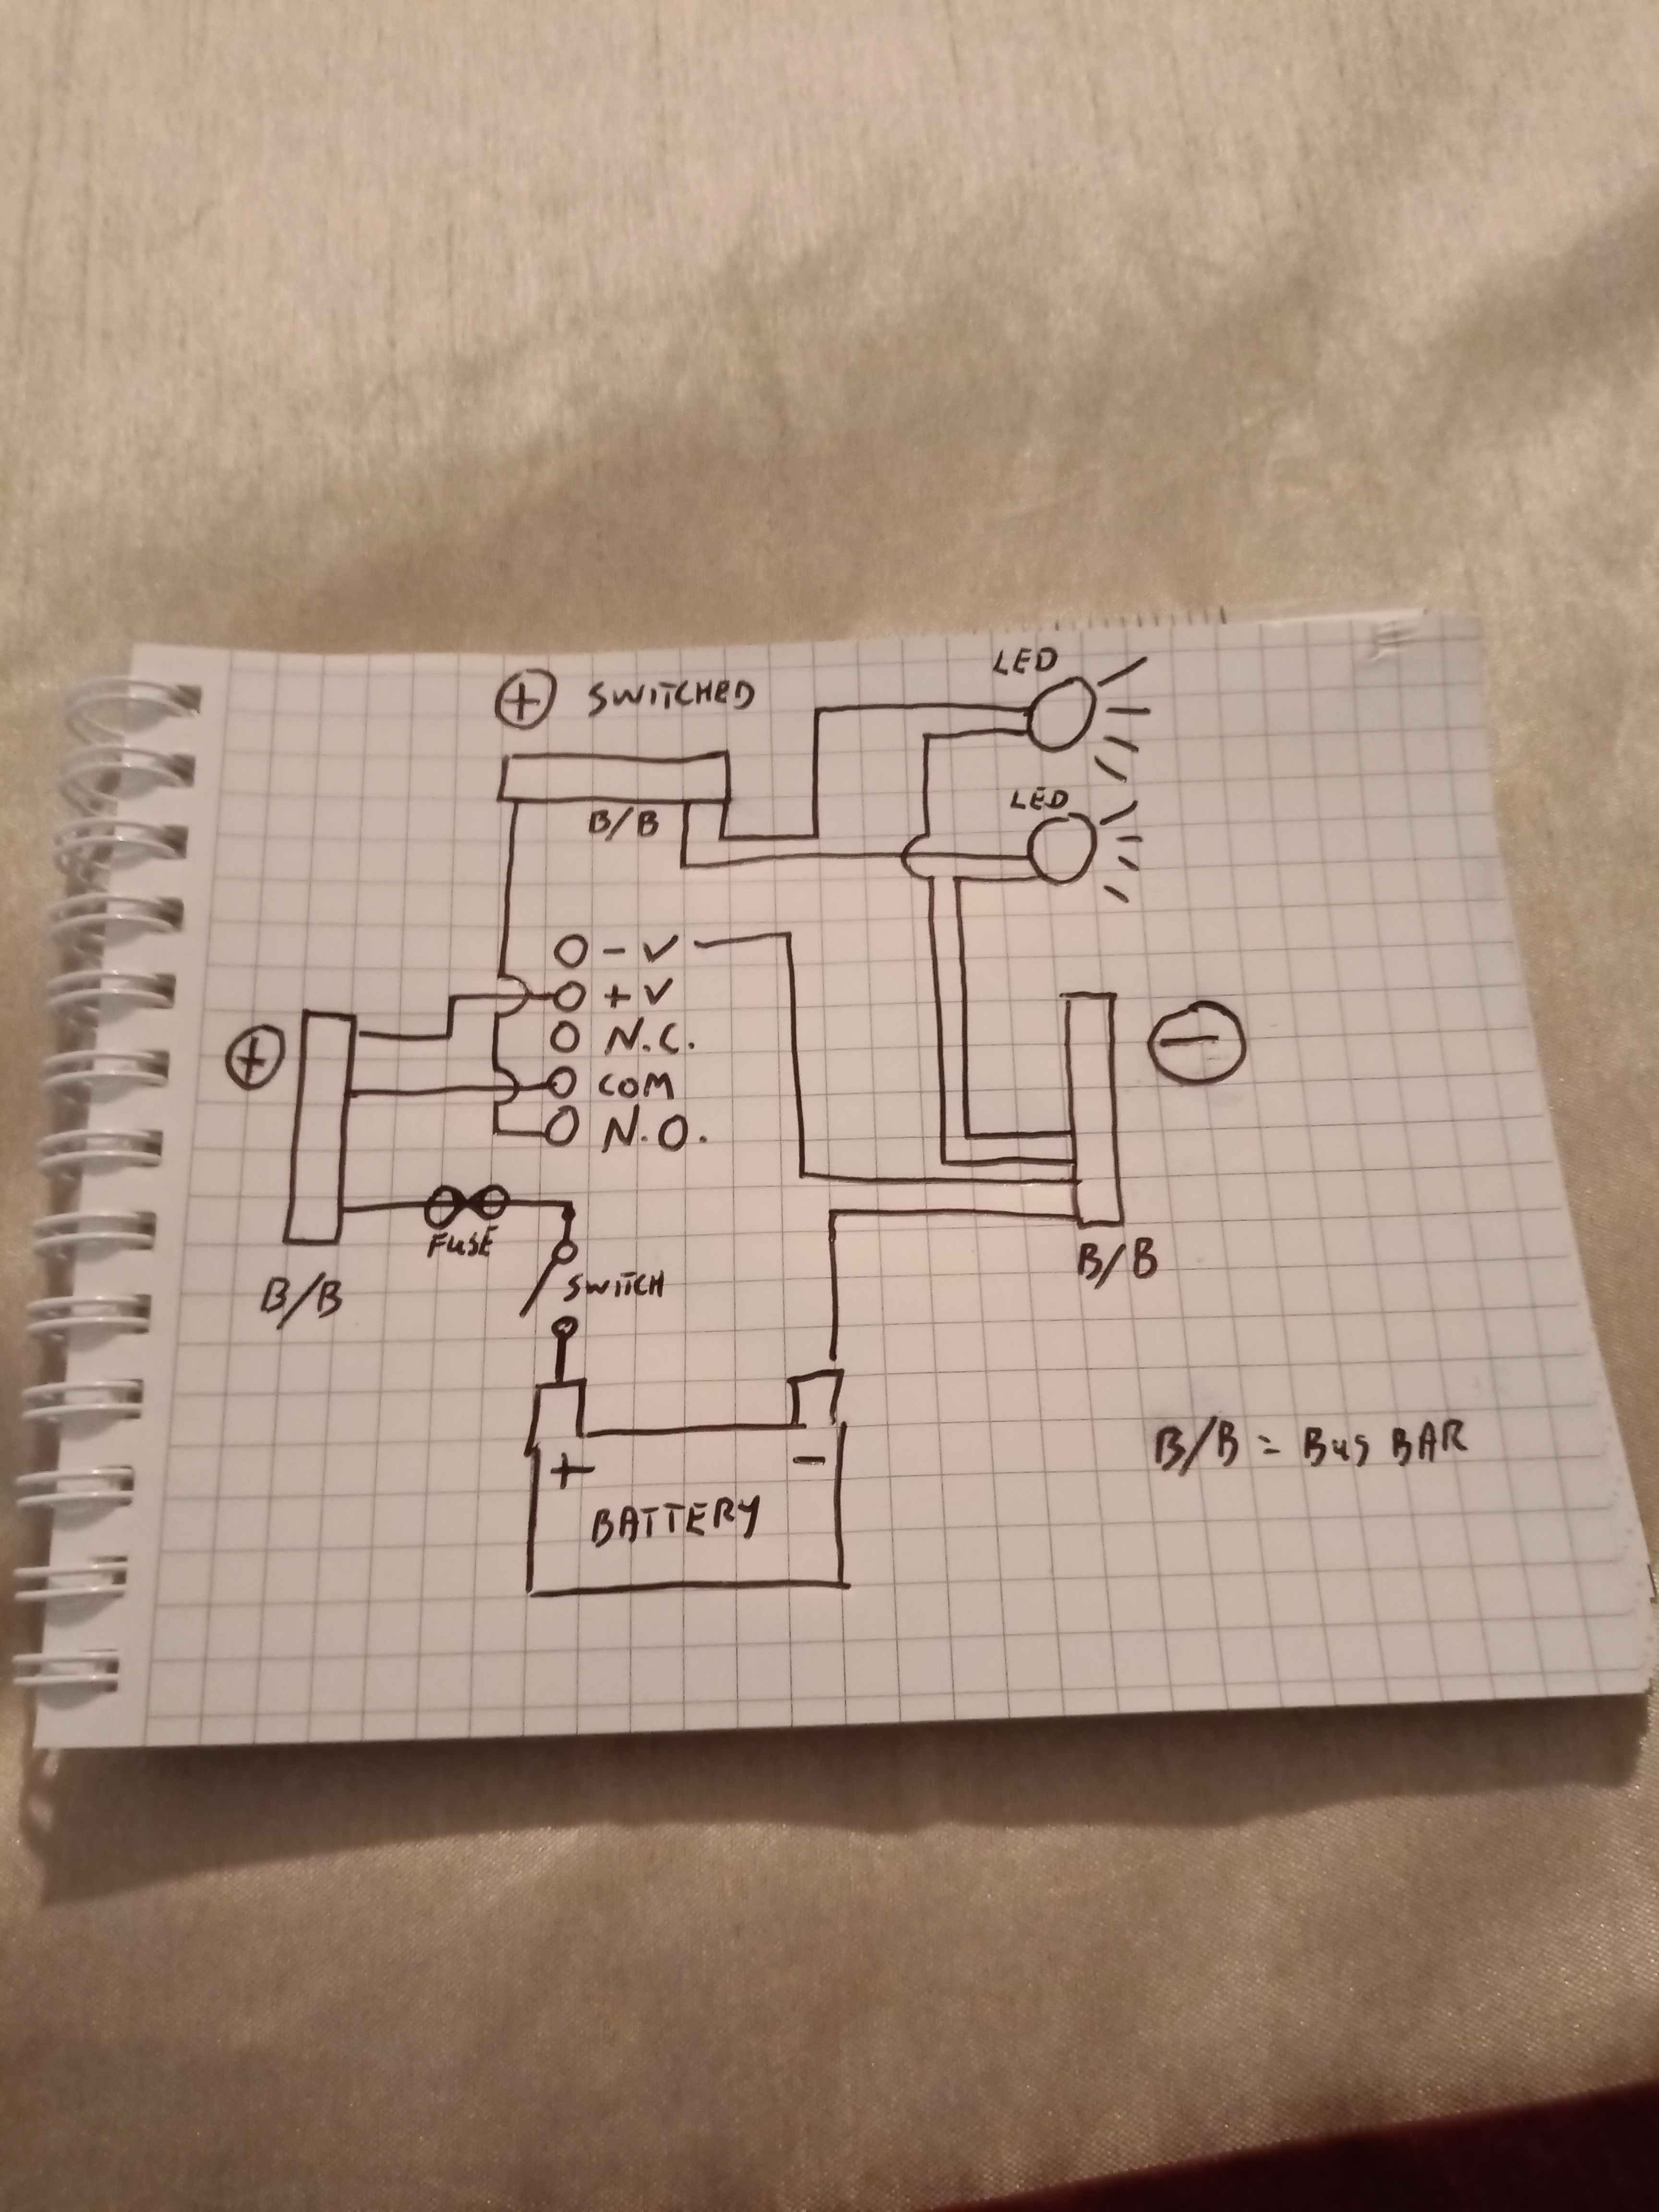 + SWITCHED
LED
B/B
LED
- V
+ V
N.C.
COM
N.O.
+
-
FUSE
SWITCH
B/B
B/B
+
-
BATTERY
B/B = BUS BAR